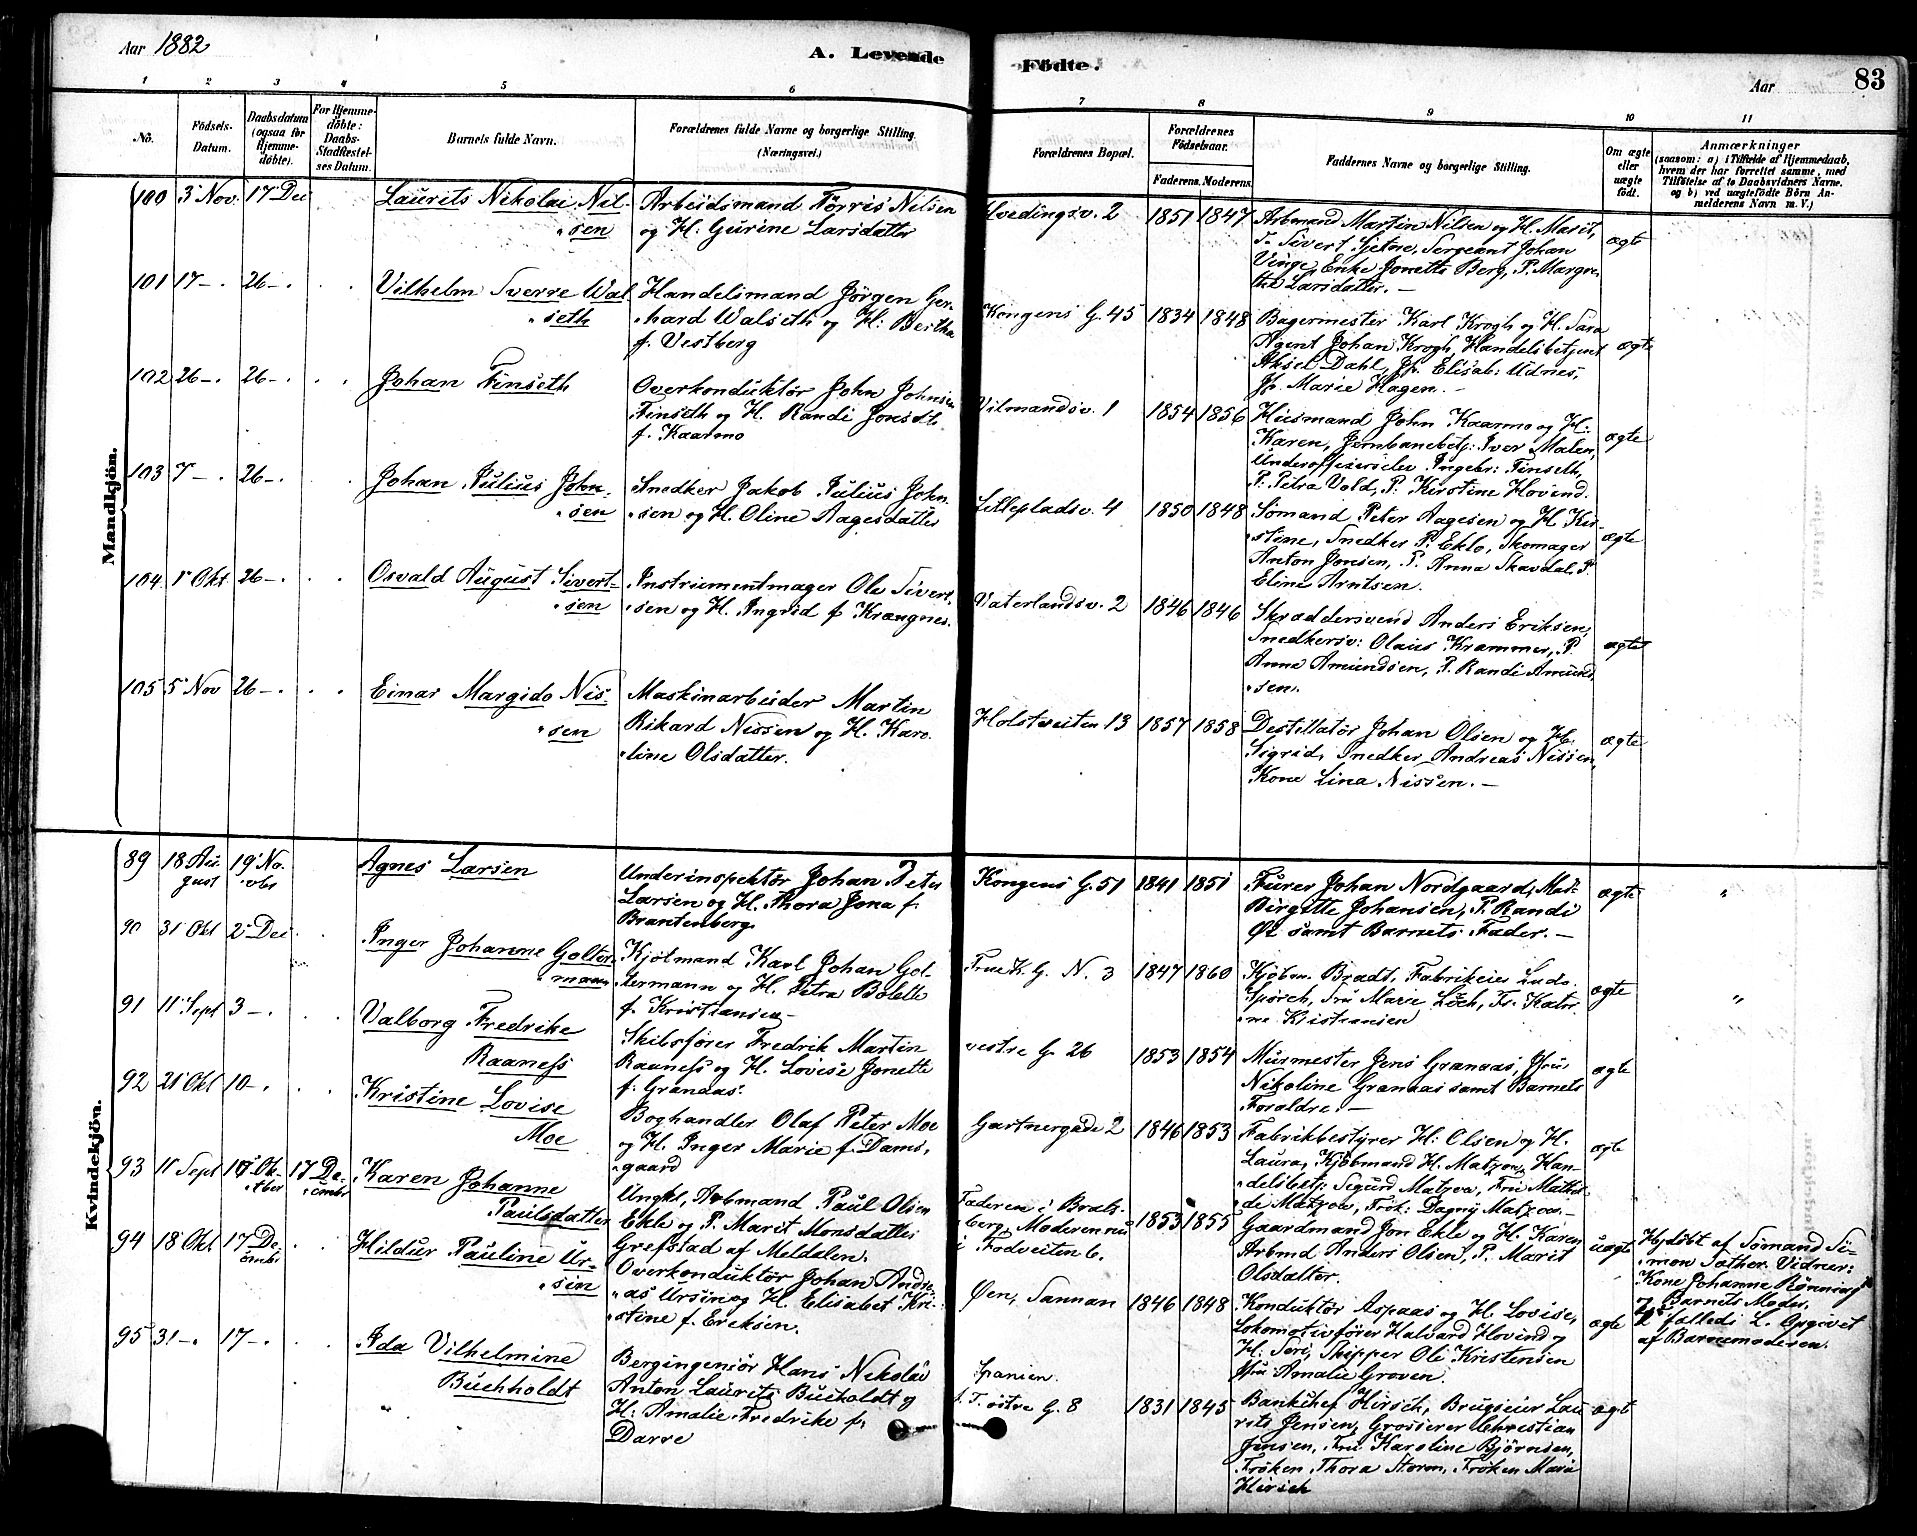 Aar 1882
A. Levende Födte.
Aar
83
1 2 3 4 5 6 7 8 9 10 11
No.
Födsels-Datum.
Daabsdatum (ogsaa for Hjemmedöbte).
For Hjemmedöbte: Daabs-Stadfæstelses Datum.
Barnets fulde Navn.
Forældrenes fulde Navne og borgerlige Stilling. (Næringsvei.)
Forældrenes Bopæl.
Forældrenes Födselsaar.
Faderens. Moderens.
Faddernes Navne og borgerlige Stilling.
Om ægte eller uægte födt.
Anmærkninger
(saasom: a) i Tilfælde af Hjemmedaab, hvem der har forrettet samme, med Tilföielse af to Daabsvidners Navne. og b) ved uægtefödte Börn Anmelderens Navn m. V.)
Mandkjön.
100 3 Nov. 17 Dec
Laurits Nikolai Nil-
"sen
Arbeidsmand Törris Nilsen
og H. Gurine Larsdatter
Hvedingsv. 2
1851 1847
Arbmand Martin Nilsen og H. Marit,
Sivert Sjetne, Sergeant Johan
Vinge, Enke Jonetta Berg, P. Margre
the Larsdatter. —
ægte
101 17 —. 26 —.
Vilhelm Sverre Wal
"seth
Handelsmand Jörgen Ger-
"hard Walseth og H: Bertha
f. Vestberg
Kongens G. 45
1834 1848
Bagermester Karl Krogh og H. Sara
Agent Johan Krogh, Handelsbetjent
Aksel Dahl, Jfr. Elisab: Udnes,
Jfr. Marie Hagen. —
ægte
102 26 —. 26 —.
Johan Finseth
Overkonduktör John Johnsen
Finseth og H. Randi Jonsdt.
f. Kaarmo
Vilmandsv. 1
1854 1856
Husmand John Kaarmo og H:
Karen, Jernbanebetj: Iver Malen,
Underoffiserselev Ingebr: Finseth,
P. Petra Vold, P. Kirstine Hovend.
ægte
103 7 —. 26 —.
Johan Julius John-
"sen
Snedker Jakob Julius John
"sen og H. Oline Aagesdatter
Lillepladsv. 4
1850 1848
Sömand Peter Aagesen og H. Kir-
"stine, Snedker P. Eklo, Skomager
Anton Jonsen, P. Anna Skavdal, P.
Eline Arntsen.
ægte
104 1 Okt 26 —.
Osvald August Sivert-
"sen
Instrumentmager Ole Sivert
"sen og H. Ingrid f Krangnes.
Vaterlandsv. 2
1846 1846
Skræddersvend Anders Eriksen,
Snedkersv: Olaus Krammer, P.
Anne Amundsen, P. Randi Amund
"sen.
ægte
105 5 Nov 26 —.
Einar Margido Nis-
"sen
Maskinarbeider Martin
Rikard Nissen og H. Karo
"line Olsdatter.
Holstveiten 13
1857 1858
Destillatör Johan Olsen og H.
Sigrid, Snedker Andreas Nissen,
Kone Lina Nissen. —
ægte
Kvindekjön.
89 18 Au-
gust 19 No-
"vbr
Agnes Larsen
Underinspektör Johan Peter
Larsen og H. Thora Jona f.
Brantenberg
Kongens G. 51
1841 1851
Furer Johan Nordgaard, Mad.
Birgitte Johansen, P. Randi
Øi samt Barnets Fader. —
ægte
"
90 31 Okt 2 Dec
Inger Johanne Golter-
"mann
Kjölmand Karl Johan Gol-
termann og H. Petra Bolette
f. Kristiansen
Frue K. G. N. 3
1847 1860
Kjöbm. Bradt, Fabrikeier Ludv.
Spörck, Fru Marie Löch, Fr. Katri
"ne Kristiansen
ægte
"
91 11 Sept 3 —.
Valborg Fredrike
Raaness
Skibsförer Fredrik Martin
Raaness og H. Lovise Jonette
f. Granaas.
vestre G. 26
1853 1854
Murmester Jens Granaas, Jfru
Nikoline Granaas samt Barnets
Foraldre. —
ægte
92 21 Okt 10 —.
Kristine Lovise
Moe
Boghandler Olaf Peter Moe
og H. Inger Marie f. Dams,
"gaard
Gartnergade 2
1846 1853
Fabrikbestyrer H: Olsen og H.
Laura, Kjöbmand H. Matzow, Han-
"delsbetj: Sigurd Matzow, Fru Mathil
"de Matzow, Frök: Dagny Matzow.—
ægte
93 11 Sept 10 Ok-
"tber 17 De-
"cembr
Karen Johanne
Paulsdatter
Ungkl, Arbmand Paul Olsen
Ekle og P. Marit Monsdatter
Grefstad af Meldalen.
Faderen i Brats-
berg, Moderen nu
i Fodveiten 6.
1853 1855
Gaardmand Jon Ekle og H. Karen
Arbmd Anders Olsen, P. Marit
Olsdatter.
uægte
Hjdöbt af Sömand Si-
"mon Sæther. Vidner:
Kone Johanne Rönning
Barnets Moder.
faldedi L. Opgivet
af Barnemoderen.
94 18 Okt 17 De-
cembr
Hildur Pauline Ur-
"sin
Overkonduktör Johan Andre
"as Ursin og H. Elisabet Kri-
"stine f. Ereksen.
Øen, Sannan
1846 1848
Konduktör Aspaas og H. Lovise,
Lokomotivförer Halvard Hovind og
H. Siri, Skipper Ole Kristensen
Jfru Amalie Groven.
ægte
95 31 —. 17 —.
Ida Vilhelmine
Buchholdt
Bergingeniör Hans Nikolai
Anton Laurits Bucholdt og
H: Amalie Fredrike f.
Darre
Spanien.
östre G. 8
1831 1845
Bankchef Hirsch, Brugseier Lau
rits Jensen, Grosserer Christian
Jensen, Fru Karoline Björnsen,
Fröken Thora Storm, Fröken Marie
Hirsch
ægt